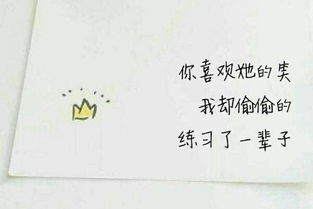 你喜欢她的类
我却偷偷的
练习了一辈子